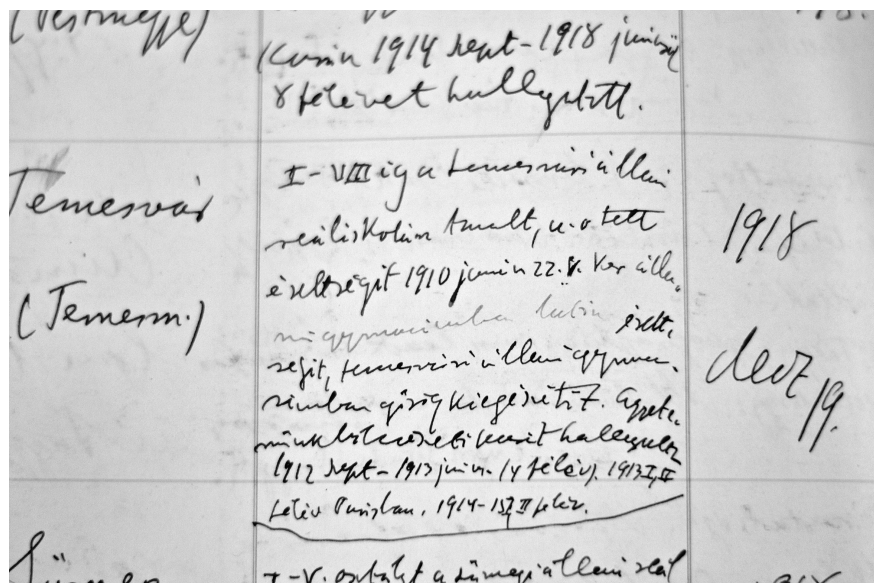 (Pestmegye)
karán 1914 sept-1918 juniusig
8 félévet hallgatott.
Temesvár
(Temesm.)
I-VIII ig a temesvári állami
reáliskolán tanult, u. o. tett
érettségit 1910 junin 22. V. ker. álla-
mi gymnasiumban latin érett-
ségit, temesvári állami gymna-
siumban görög kiegészítőt. Egyete-
münk bölcsészeti karát hallgatta
1912 sept-1913 jun. (4 félév). 1913 I, II
félév Párisban, 1914-15 I, II félév.
1918
decz 19.
I-V. osztályt a sümegi állami reál